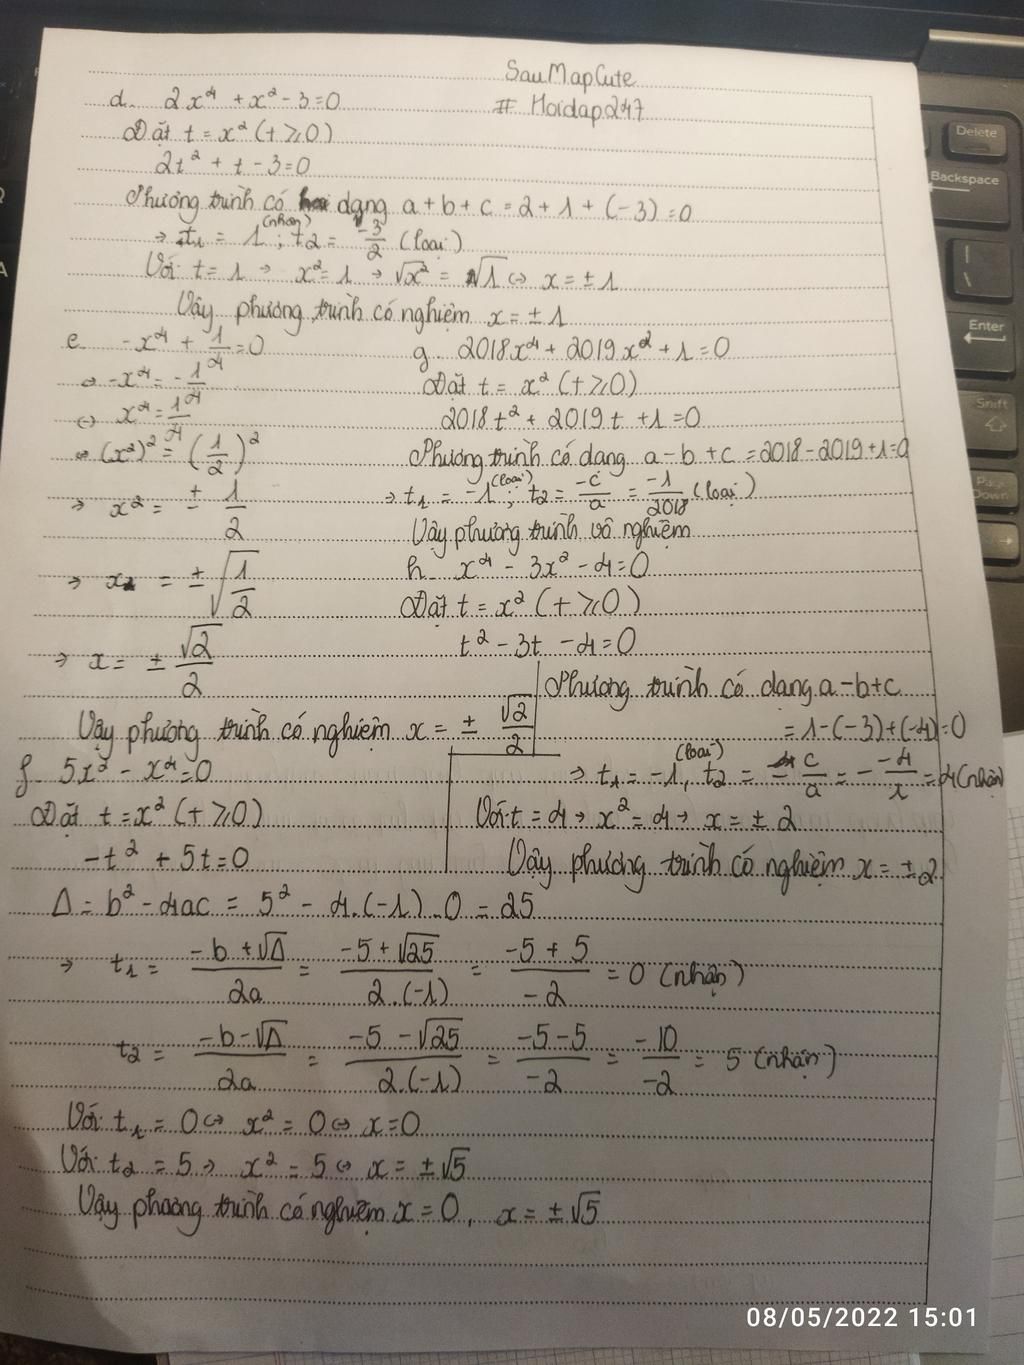 SauMapCute
# Hoidap247
d. 2x⁴ + x² - 3 = 0
Đặt t = x² (t ≥ 0)
2t² + t - 3 = 0
Phương trình có dạng a + b + c = 2 + 1 + (-3) = 0
→ t₁ = 1 (nhận) ; t₂ = -3/2 (loại)
Với t = 1 → x² = 1 → √x² = √1 ⇔ x = ± 1
Vậy phương trình có nghiệm x = ± 1
e. -x⁴ + 1/4 = 0
⇔ -x⁴ = -1/4
⇔ x⁴ = 1/4
⇔ (x²)² = (1/2)²
→ x² = ± 1/2
→ x = ± √(1/2)
→ x = ± √2/2
Vậy phương trình có nghiệm x = ± √2/2
g. 2018x⁴ + 2019x² + 1 = 0
Đặt t = x² (t ≥ 0)
2018t² + 2019t + 1 = 0
Phương trình có dạng a - b + c = 2018 - 2019 + 1 = 0
→ t₁ = -1 (loại) ; t₂ = -c/a = -1/2018 (loại)
Vậy phương trình vô nghiệm
h. x⁴ - 3x² - 4 = 0
Đặt t = x² (t ≥ 0)
t² - 3t - 4 = 0
Phương trình có dạng a - b + c
= 1 - (-3) + (-4) = 0
⇒ t₁ = -1 (loại), t₂ = - c/a = - -4/1 = 4 (nhận)
Với t = 4 → x² = 4 → x = ± 2
Vậy phương trình có nghiệm x = ± 2
f. 5x² - x⁴ = 0
Đặt t = x² (t ≥ 0)
-t² + 5t = 0
Δ = b² - 4ac = 5² - 4.(-1).0 = 25
→ t₁ = (-b + √Δ)/2a = (-5 + √25)/2.(-1) = (-5 + 5)/-2 = 0 (nhận)
t₂ = (-b - √Δ)/2a = (-5 - √25)/2.(-1) = (-5 - 5)/-2 = -10/-2 = 5 (nhận)
Với t₁ = 0 ⇔ x² = 0 ⇔ x = 0
Với t₂ = 5 → x² = 5 ⇔ x = ± √5
Vậy phương trình có nghiệm x = 0, x = ± √5
Delete
Backspace
Enter
Shift
Page
Down
08/05/2022 15:01